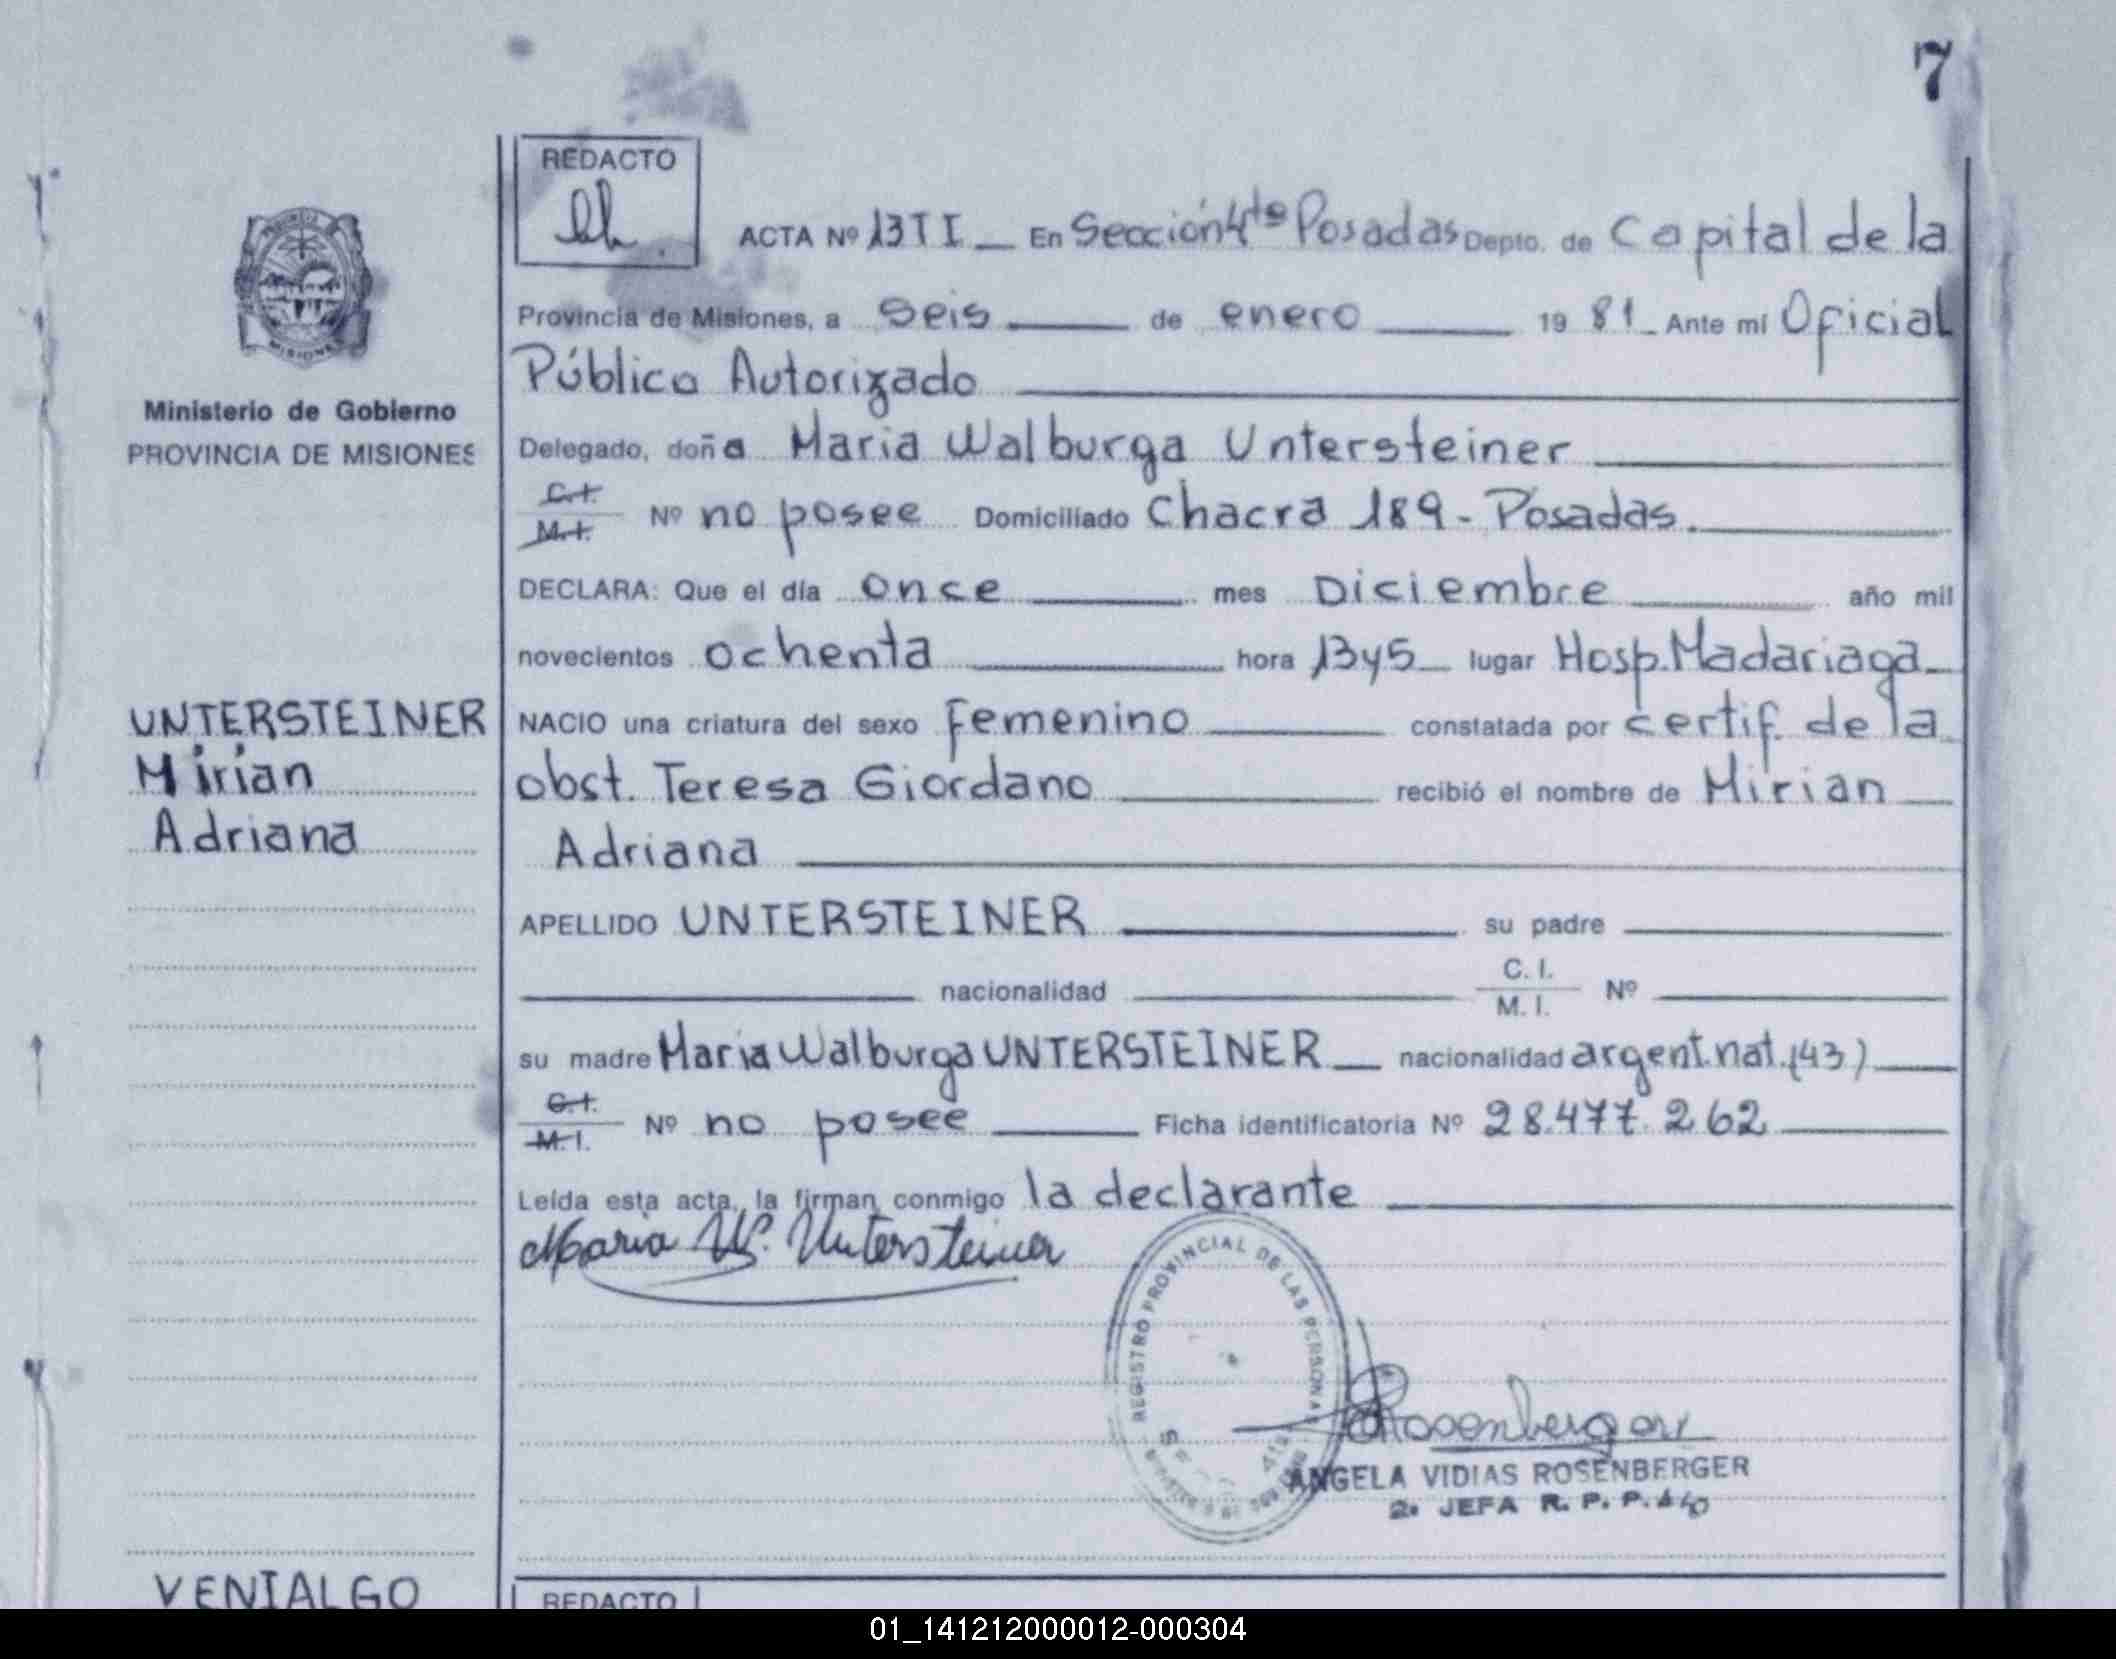 7
REDACTO
ACTA Nº 13 T I __ En Sección 4ta Posadas Depto. de Capital de la
Provincia de Misiones, a seis de enero 19 81 Ante mí Oficial
Ministerio de Gobierno
PROVINCIA DE MISIONES
Público Autorizado
Delegado, doña Maria Walburga Untersteiner
C.I.
M.I. Nº no posee Domiciliado Chacra 189 - Posadas.
DECLARA: Que el día once mes Diciembre año mil
novecientos ochenta hora 13y5 lugar Hosp. Madariaga
UNTERSTEINER
Mirian
Adriana
NACIO una criatura del sexo femenino constatada por certif. de la
obst. Teresa Giordano recibió el nombre de Mirian
Adriana
APELLIDO UNTERSTEINER su padre
nacionalidad C. I.
M. I. Nº
su madre Maria Walburga UNTERSTEINER nacionalidad argent. nat. (43)
C.I.
M.I. Nº no posee Ficha identificatoria Nº 28.477.262
Leída esta acta, la firman conmigo la declarante
Maria W. Untersteiner
REGISTRO PROVINCIAL DE LAS PERSONAS
Rosenberger
ANGELA VIDIAS ROSENBERGER
2. JEFA R. P. P.
VENIALGO
REDACTO
01_141212000012-000304